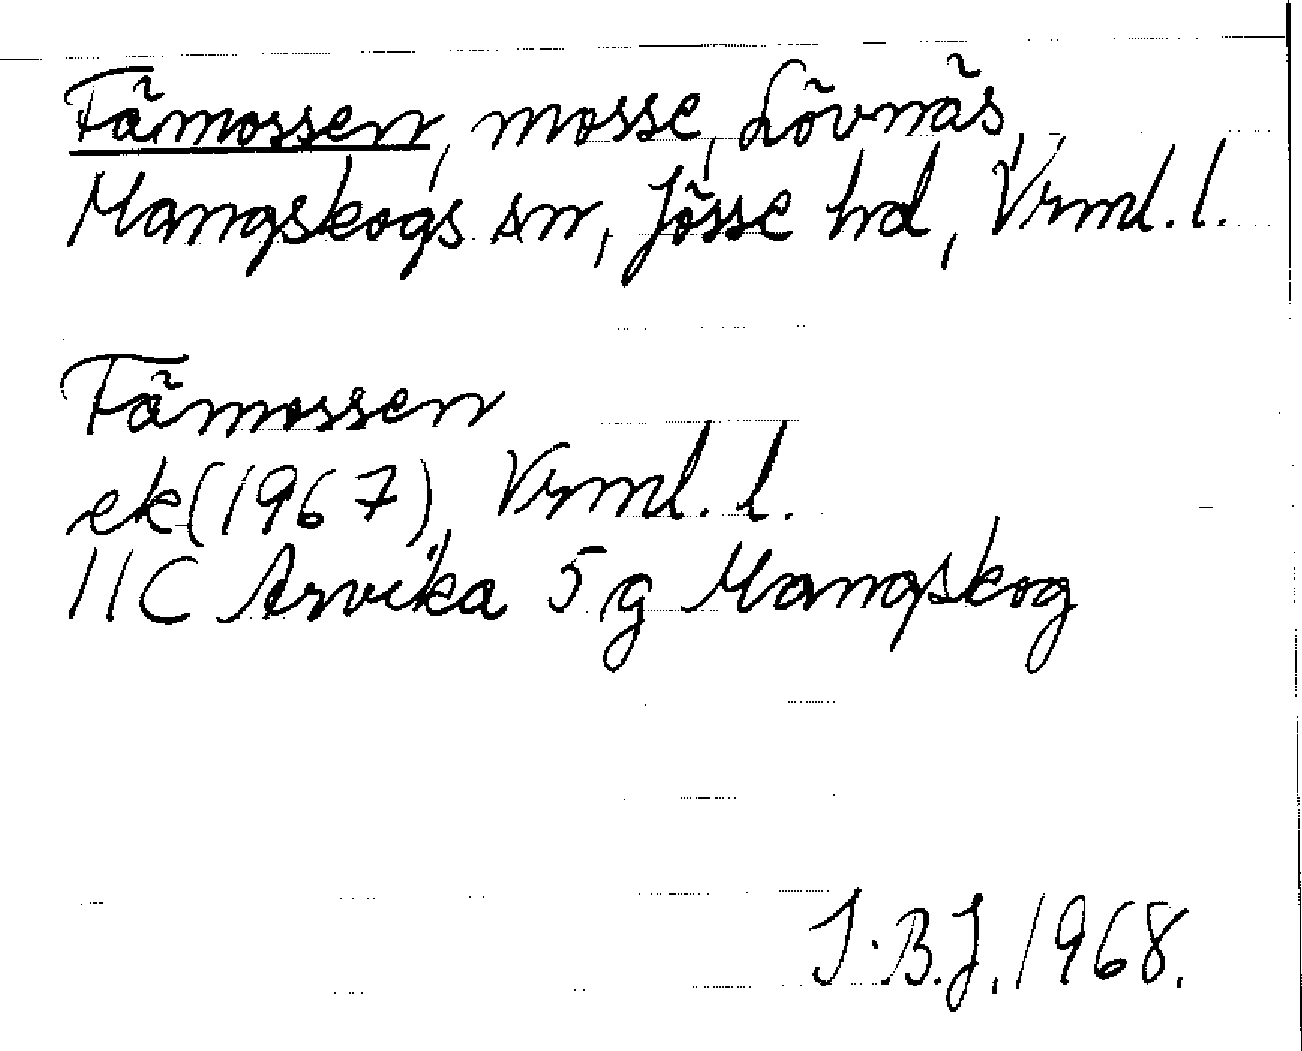 Fämossen, mosse, Lövnäs,
Mangskogs sn, Jösse hd, Vrml. l.
Fämossen
ek (1967), Vrml. l.
11C Arvika 5 g Mangskog
I.B.J. 1968.